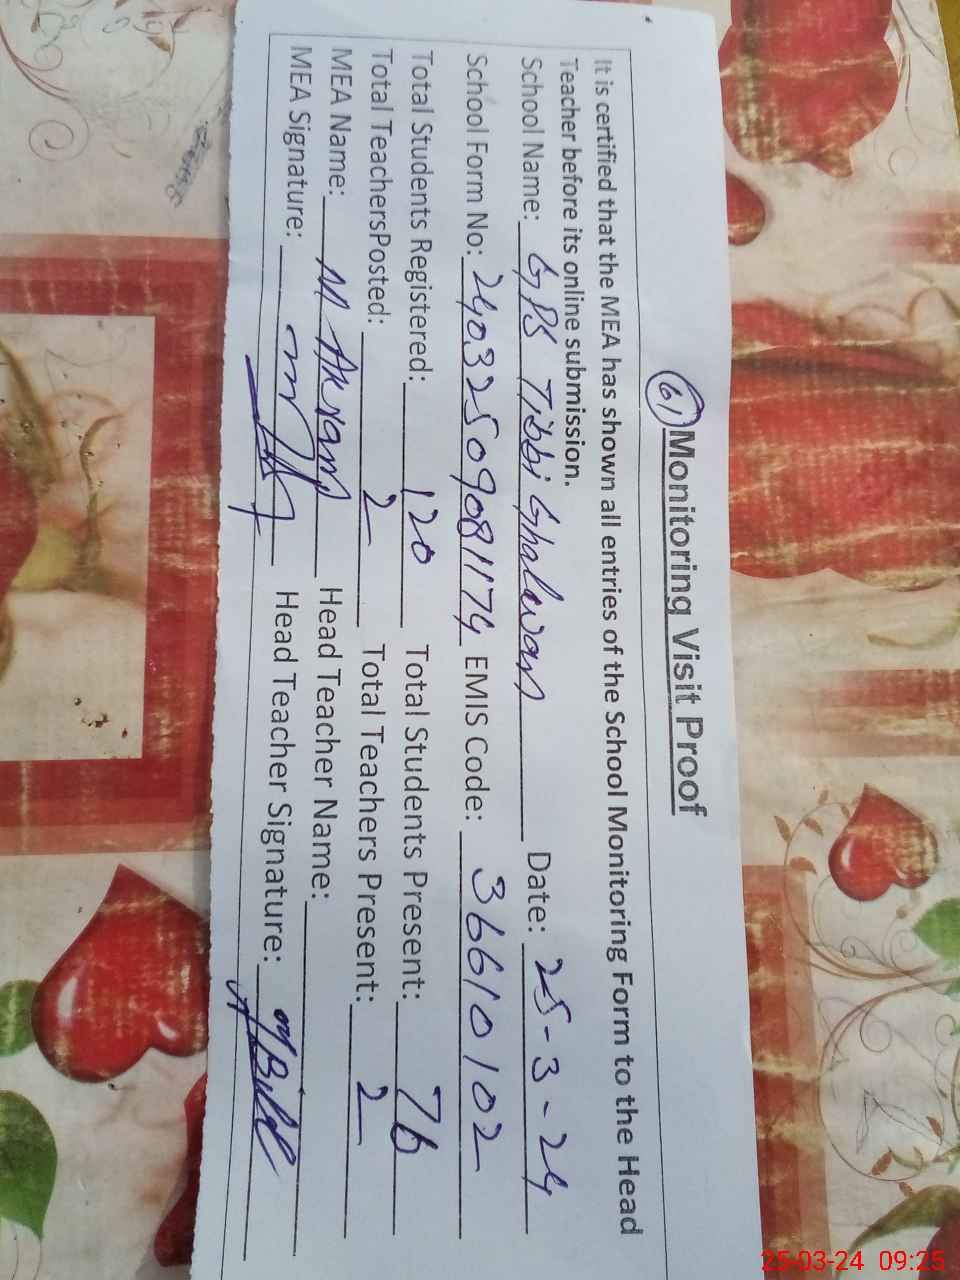 61 Monitoring Visit Proof
It is certified that the MEA has shown all entries of the School Monitoring Form to the Head
Teacher before its online submission.
School Name: GPS Tibbi Ghalwan Date: 25-3-24
School Form No: 240325090811174 EMIS Code: 36610102
Total Students Registered: 120 Total Students Present: 76
Total TeachersPosted: 2 Total Teachers Present: 2
MEA Name: M Akram Head Teacher Name:
MEA Signature: Head Teacher Signature:
25-03-24 09:25